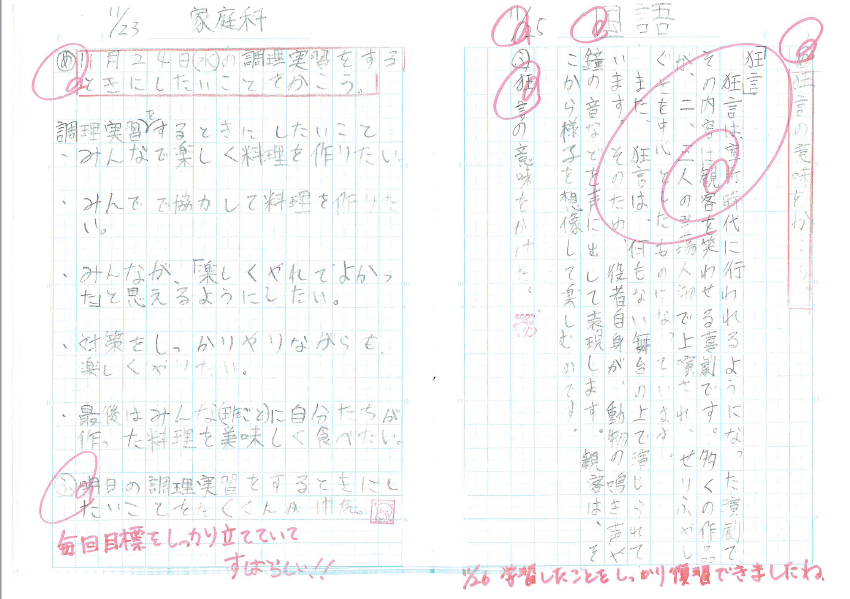 11/23 家庭科
め 11月24日(水)の調理実習をする
ときにしたいことをかこう。
調理実習をするときにしたいこと
・みんなで楽しく料理を作りたい。
・みんでで協力して料理を作りた
い。
・みんなが、「楽しくやれてよかっ
た」と思えるようにしたい。
・対策をしっかりやりながらも、
楽しくやりたい。
・最後はみんな(班ごと)に自分たちが
作った料理を美味しく食べたい。
ふ 明日の調理実習をするときにし
たいことをたくさんかけた。
毎回目標をしっかり立てていて
すばらしい!!
11/25 国語
狂言の意味をかこう
狂言
狂言は、室町時代に行われるようになった演劇で、
その内容は観客を笑わせる喜劇です。多くの作品
が、二、三人の登場人物で上演され、せりふやし
ぐさを中心としたものになっています。
また、狂言は、何もない舞台の上で演じられて
います。そのため、役者自身が、動物の鳴き声や
鐘の音などを声に出して表現します。観客は、そ
こから様子を想像して楽しむのです。
狂言の意味をかけた。
11/26 学習したことをしっかり復習できましたね。